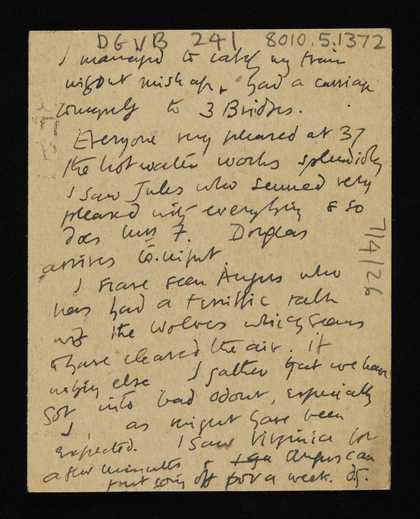 DGVB 241 8010.5.1372
I managed to catch my train
without mishap & had a carriage
to myself to 3 Bridges.
Everyone very pleased at 37
the hot water works splendidly
I saw Jules who seemed very
pleased with everything & so
does Miss 7. Douglas
arrives to.night
I have seen Angus who
has had a terrific talk
with the Wolves which seems
to have cleared the air. if
nothing else I gather that we have
got into bad odour, especially
I, as might have been
expected. I saw Virginia for
a few minutes &
Angus can
off for a week. DG.
7/4/26